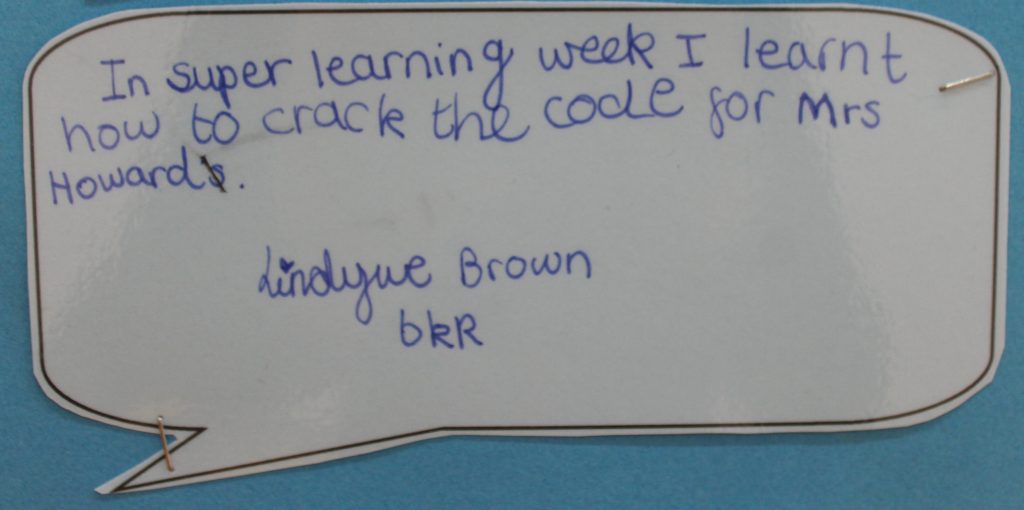 In super learning week I learnt
how to crack the code for Mrs
Howard.
Brown
6kR